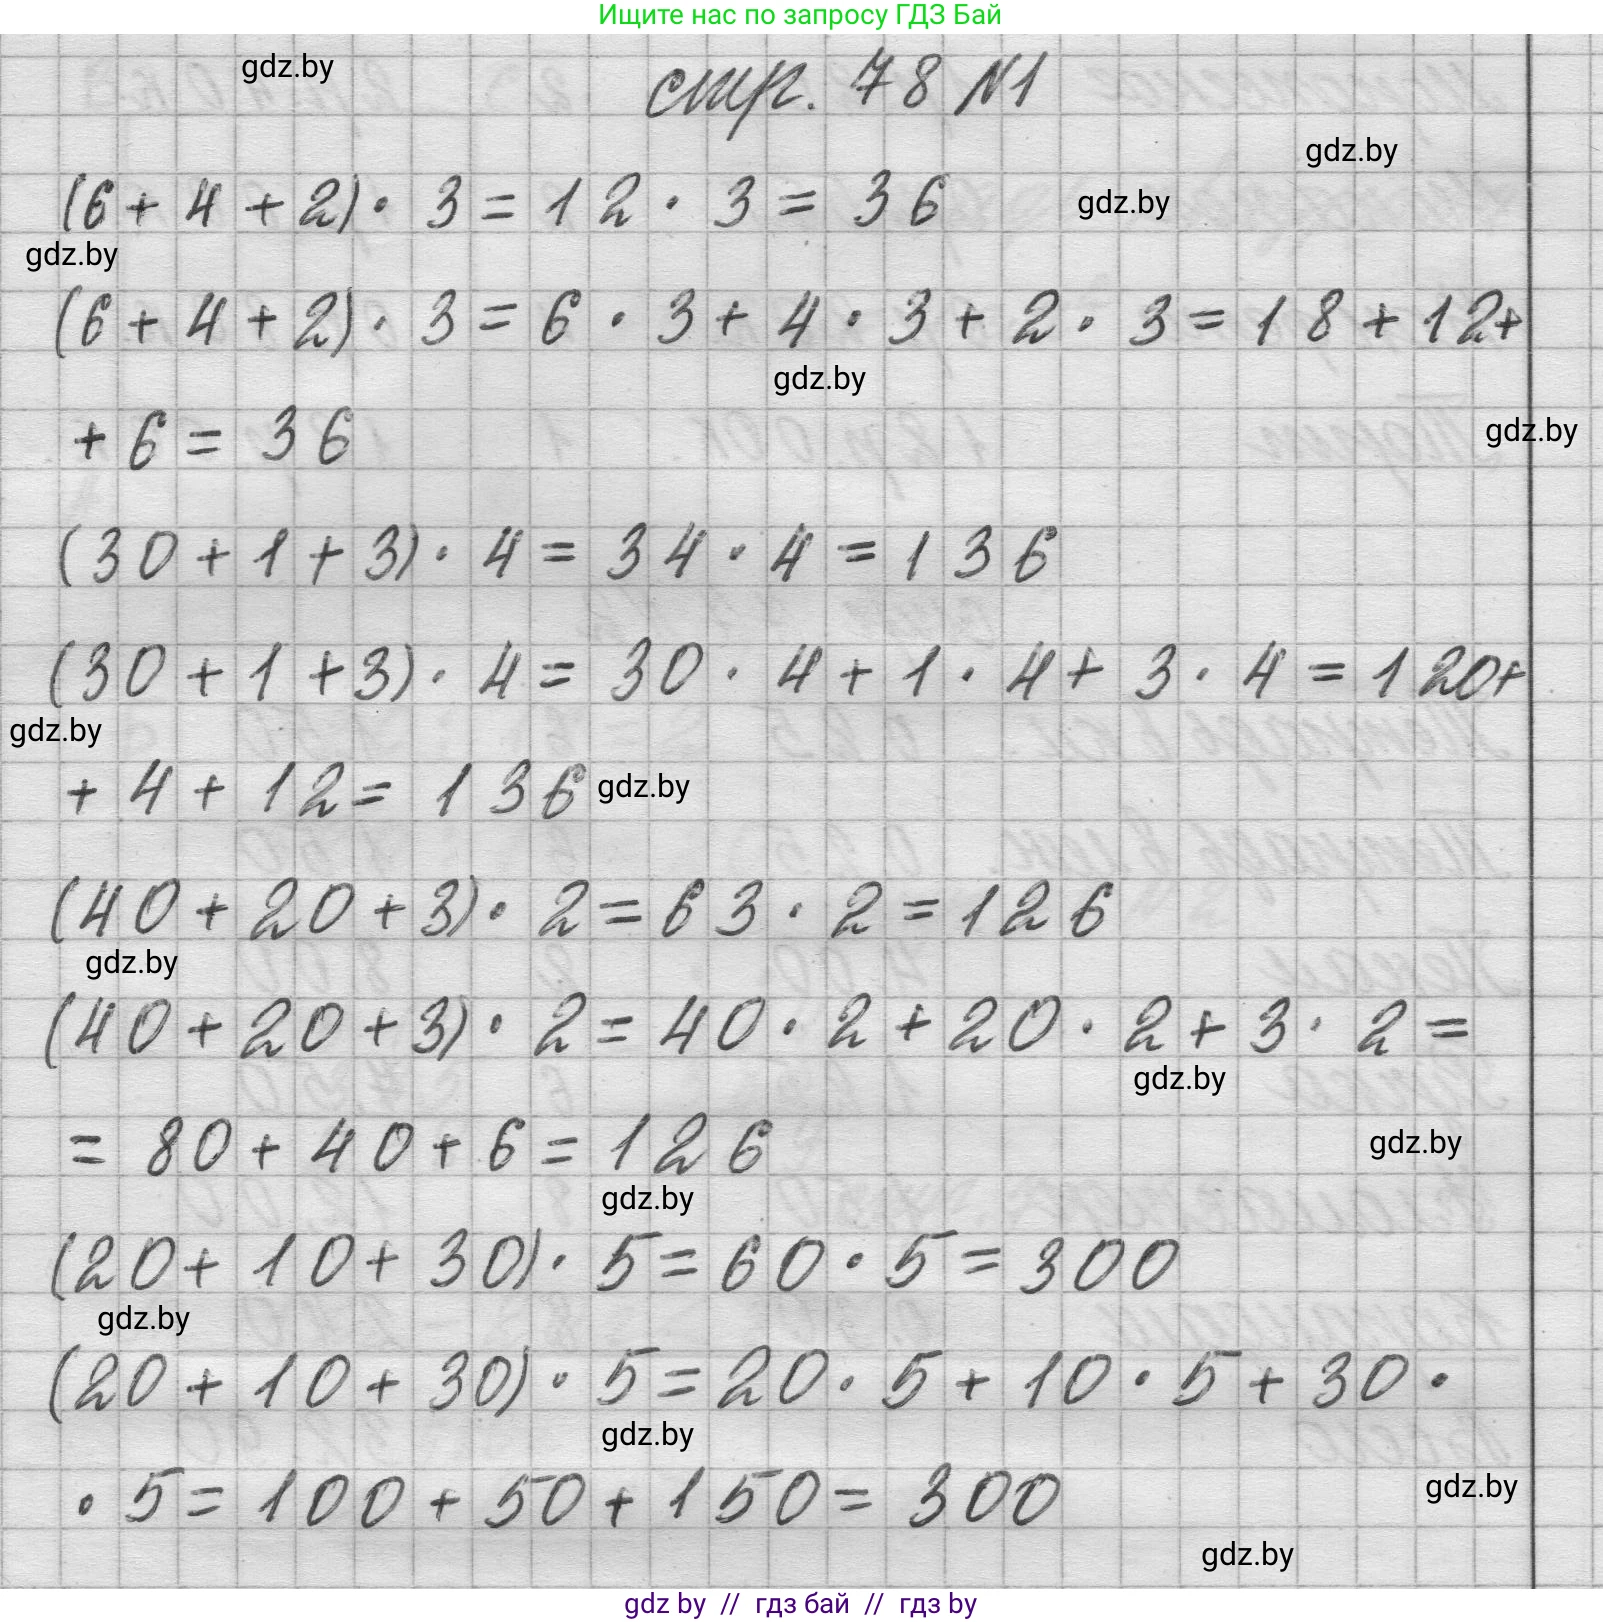 Ищите нас по запросу ГДЗ Бай
gdz.by
стр. 78 №1
gdz.by
(6 + 4 + 2) · 3 = 12 · 3 = 36
gdz.by
gdz.by
(6 + 4 + 2) · 3 = 6 · 3 + 4 · 3 + 2 · 3 = 18 + 12 +
gdz.by
+ 6 = 36
gdz.by
(30 + 1 + 3) · 4 = 34 · 4 = 136
(30 + 1 + 3) · 4 = 30 · 4 + 1 · 4 + 3 · 4 = 120 +
gdz.by
+ 4 + 12 = 136
gdz.by
(40 + 20 + 3) · 2 = 63 · 2 = 126
gdz.by
(40 + 20 + 3) · 2 = 40 · 2 + 20 · 2 + 3 · 2 =
gdz.by
= 80 + 40 + 6 = 126
gdz.by
gdz.by
(20 + 10 + 30) · 5 = 60 · 5 = 300
gdz.by
(20 + 10 + 30) · 5 = 20 · 5 + 10 · 5 + 30 ·
gdz.by
· 5 = 100 + 50 + 150 = 300
gdz.by
gdz.by
gdz by // гдз бай // гдз by